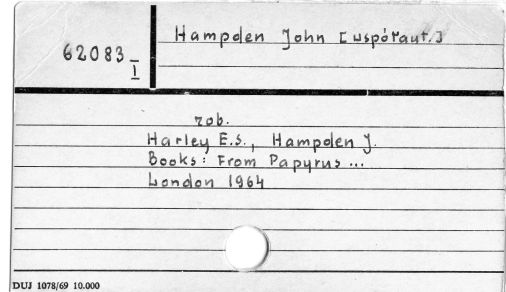 Hampden John [współaut.]
62083
I
zob.
Harley E.S., Hampden J.
Books: From Papyrus ...
London 1964
DUJ 1078/69 10.000